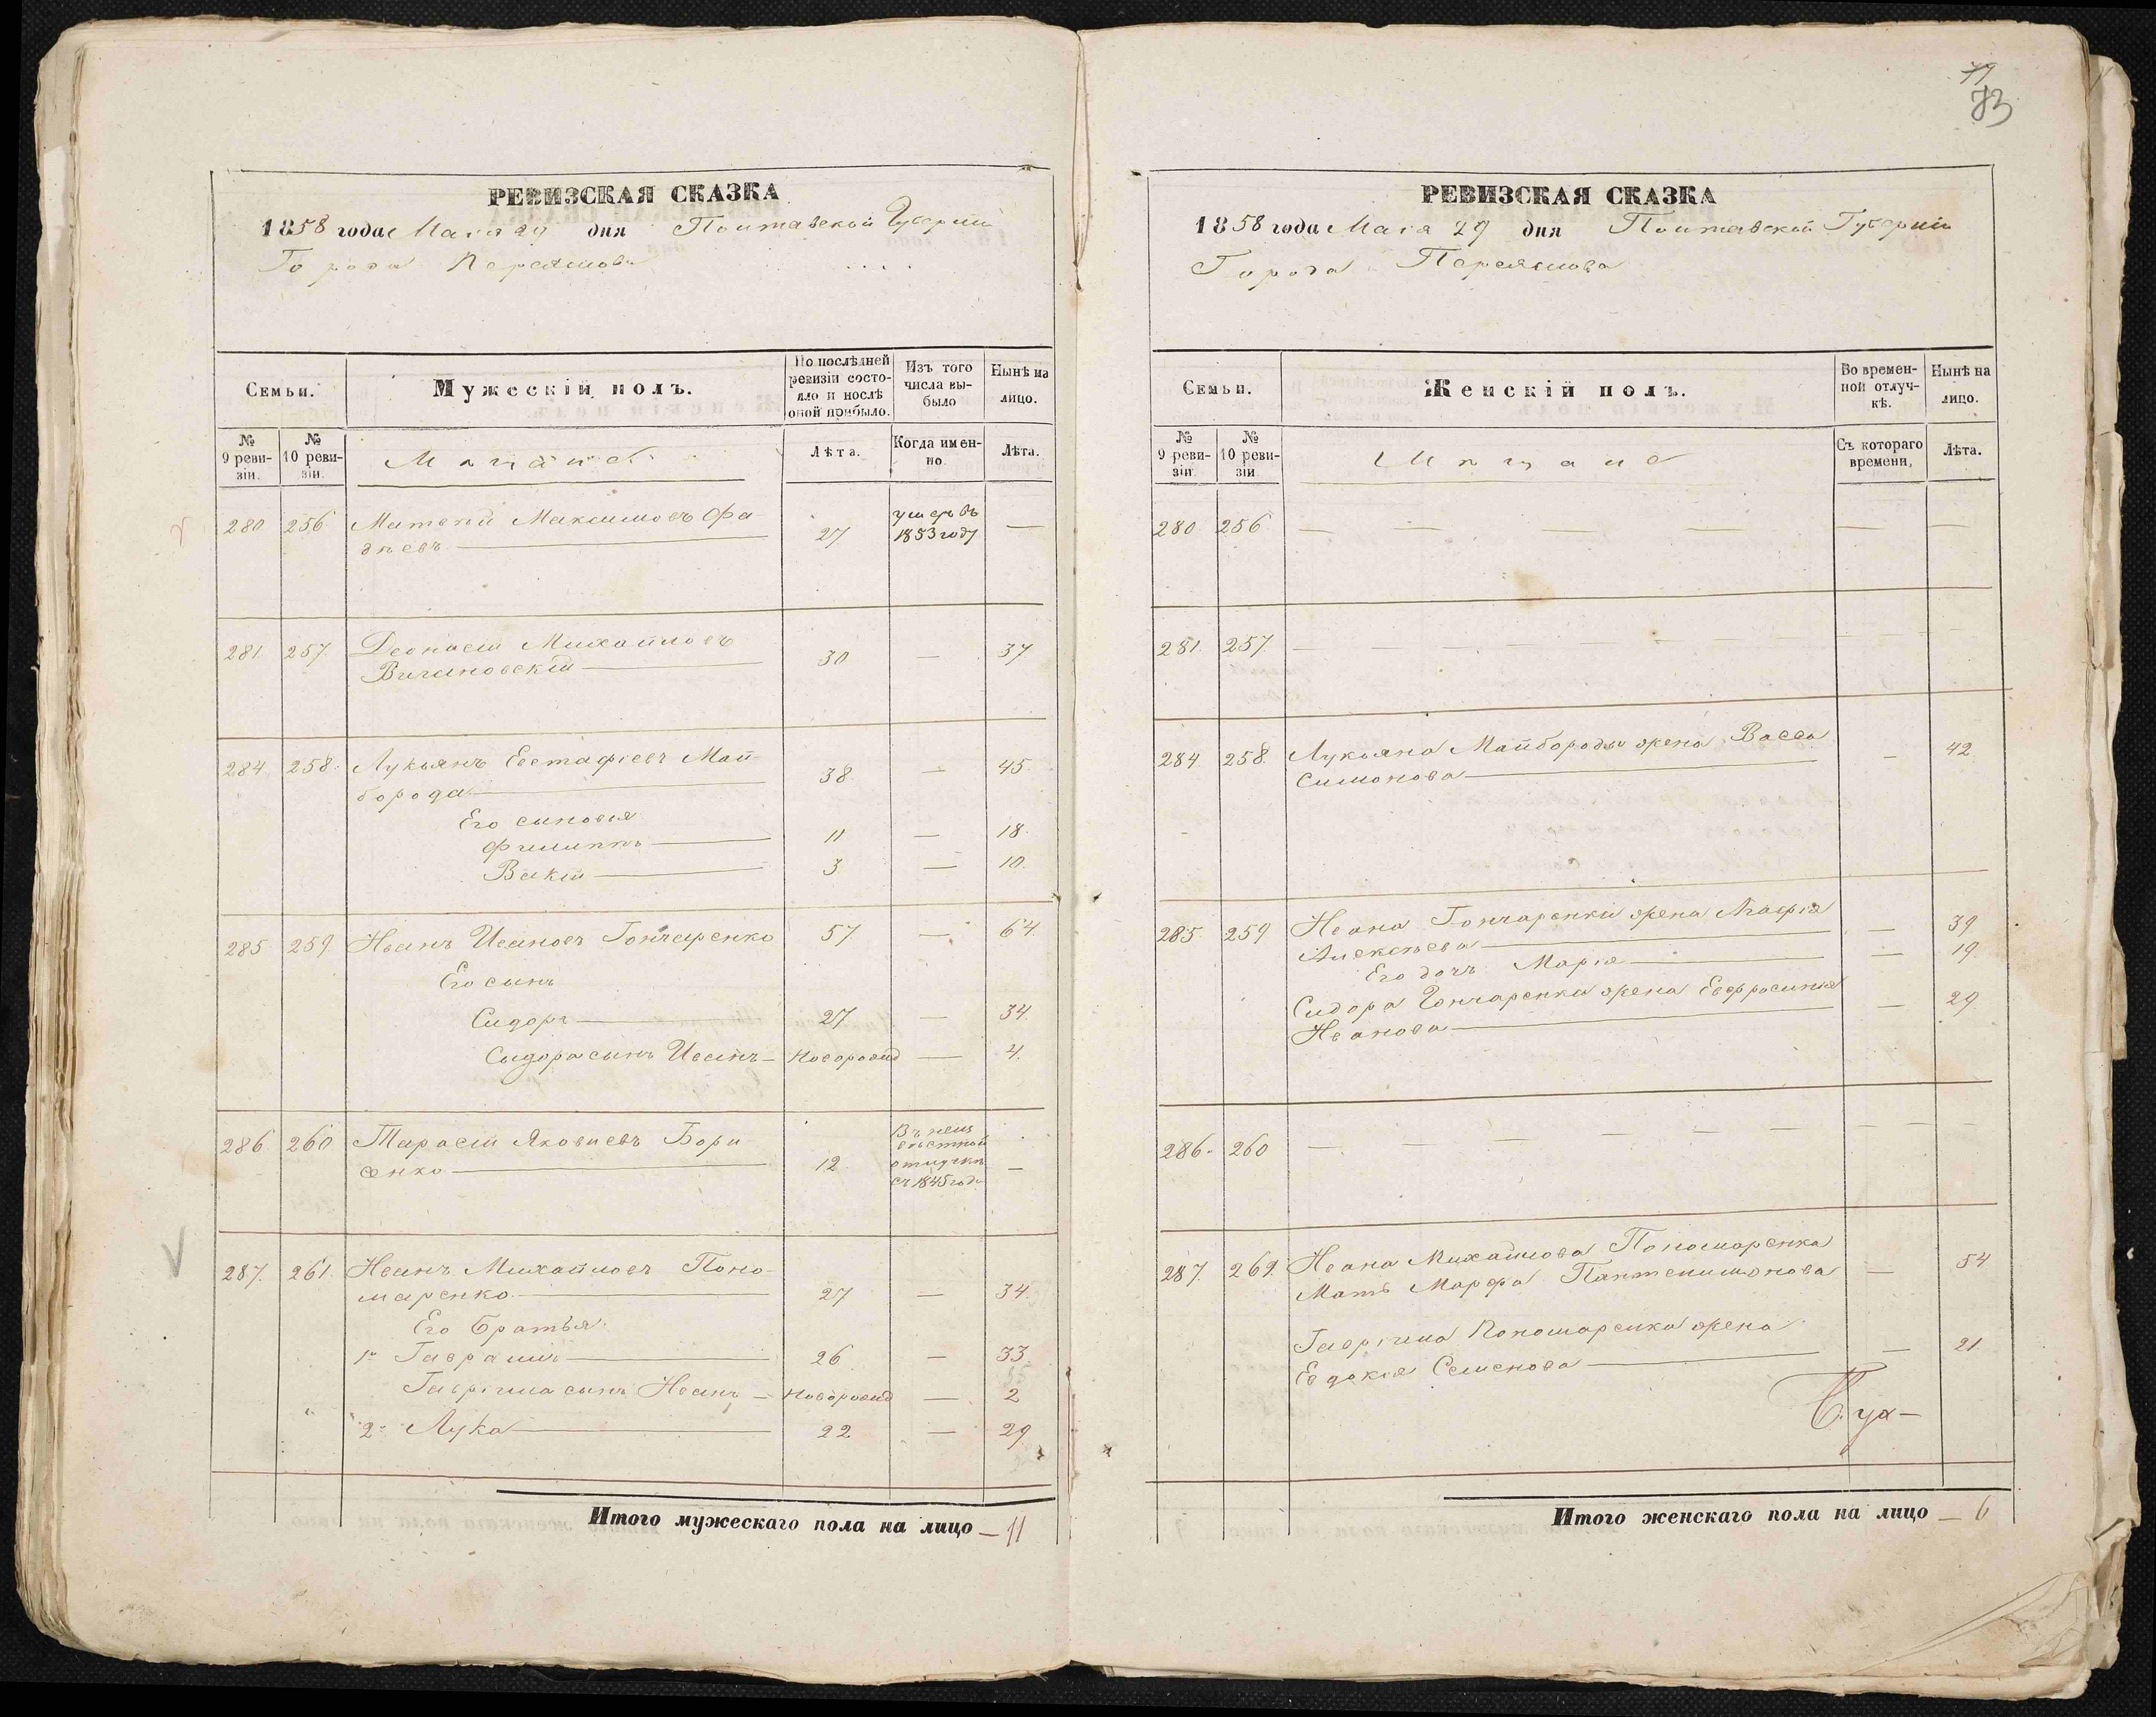 73
РЕВИЗСКАЯ СКАЗКА
1858 года Мая 29 дня Полтавской Губерніи
Города Переяслова
Семьи.
Мужескій полъ.
По послѣдней ревизіи состояло и послѣ оной прибыло.
Изъ того числа выбыло
Нынѣ на лицо.
№ 9 ревизіи.
№ 10 ревизіи.
Мѣщане
Лѣта.
Когда именно.
Лѣта.
280 256 Матвѣй Максимовъ Фа- 27 умеръ въ —
дѣевъ 1853 году
281 257 Леонтій Михайловъ 30 — 37
284 258 Лукьянъ Евстафіевъ Май- 38 — 45
борода
Его сыновья
Филиппъ 11 — 18
3 — 10
285 259 Иванъ Ивановъ Гончаренко 57 — 64
Его сынъ
Сидоръ 27 — 34
Сидора сынъ Иванъ — Новорожд — 4
286 260 Тарасій Яковлевъ Бори- 12 Въ неиз —
сенко вѣстной
отлучкѣ
съ 1845 года
287 261 Иванъ Михайловъ Поно-
маренко 27 — 34
Его братья
1й Гавріилъ 26 — 33
Гавріила сынъ Иванъ — Новорожд — 2
2й Лука 22 — 29
Итого мужескаго пола на лицо — 11
РЕВИЗСКАЯ СКАЗКА
1858 года Мая 29 дня Полтавской Губерніи
Города Переяслова
Семьи.
Женскій полъ.
Во временной отлучкѣ.
Нынѣ на лицо.
№ 9 ревизіи.
№ 10 ревизіи
Мѣщане
Съ котораго времени.
Лѣта.
280 256 — — — — — —
281 257 — — — — — —
284 258 Лукьяна Майбороды жена Васса — 42
Симонова
285 259 Ивана Гончаренка жена Агафія — 39
Алексѣева
Его дочь Марія — 19
Сидора Гончаренка жена Евфросинія — 29
Иванова
286 260 — — — — — —
287 261 Ивана Михайлова Пономаренка — 54
Мать Марфа Пантелимонова
Гавріила Пономаренка жена — 21
Евдокія Семенова
Итого женскаго пола на лицо — 6